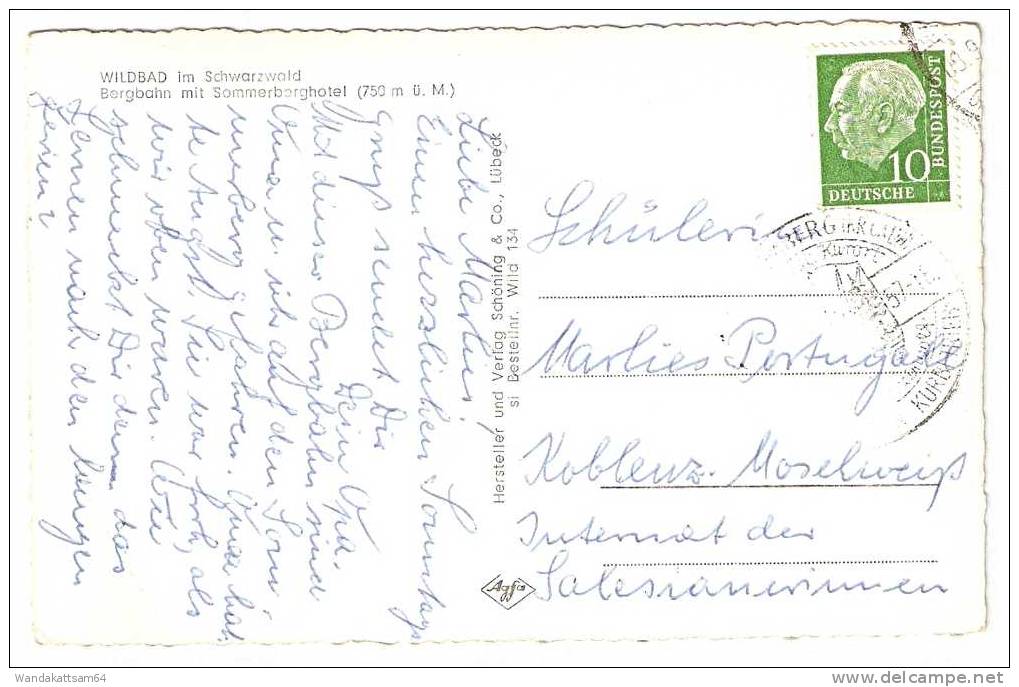 WILDBAD im Schwarzwald
Bergbahn mit Sommerberghotel (750 m ü. M.)
Liebe Marlies!
Einen herzlichen Sonntags
gruß sendet Dir
Dein Opa.
Mit dieser Bergbahn sind
Oma u. ich auf den Som-
merberg gefahren. Oma hat-
te Angst. Sie war froh, als
wir oben waren. Wie
schmeckt Dir denn das
Lernen nach den langen
Ferien?
Hersteller und Verlag Schöning & Co., Lübeck
si Bestellnr. Wild 134
Agfa
BUNDESPOST
10
DEUTSCHE
Kurort
Schülerin
Marlies Portugall
Koblenz-Moselweiß
Internat der
Salesianerinnen
Wandakattsam64